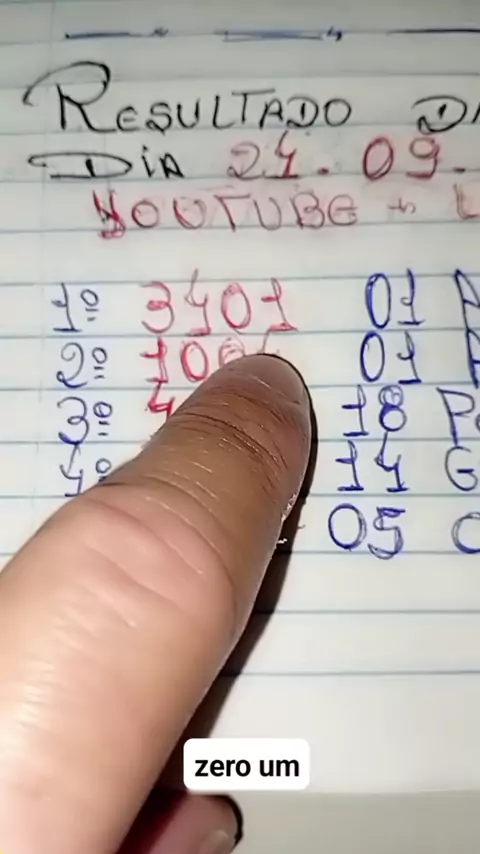 RESULTADO
DIA 24.09.
YOUTUBE +
1º 3401 01
2º 01
3º 18
4º 14 G
05
zero um